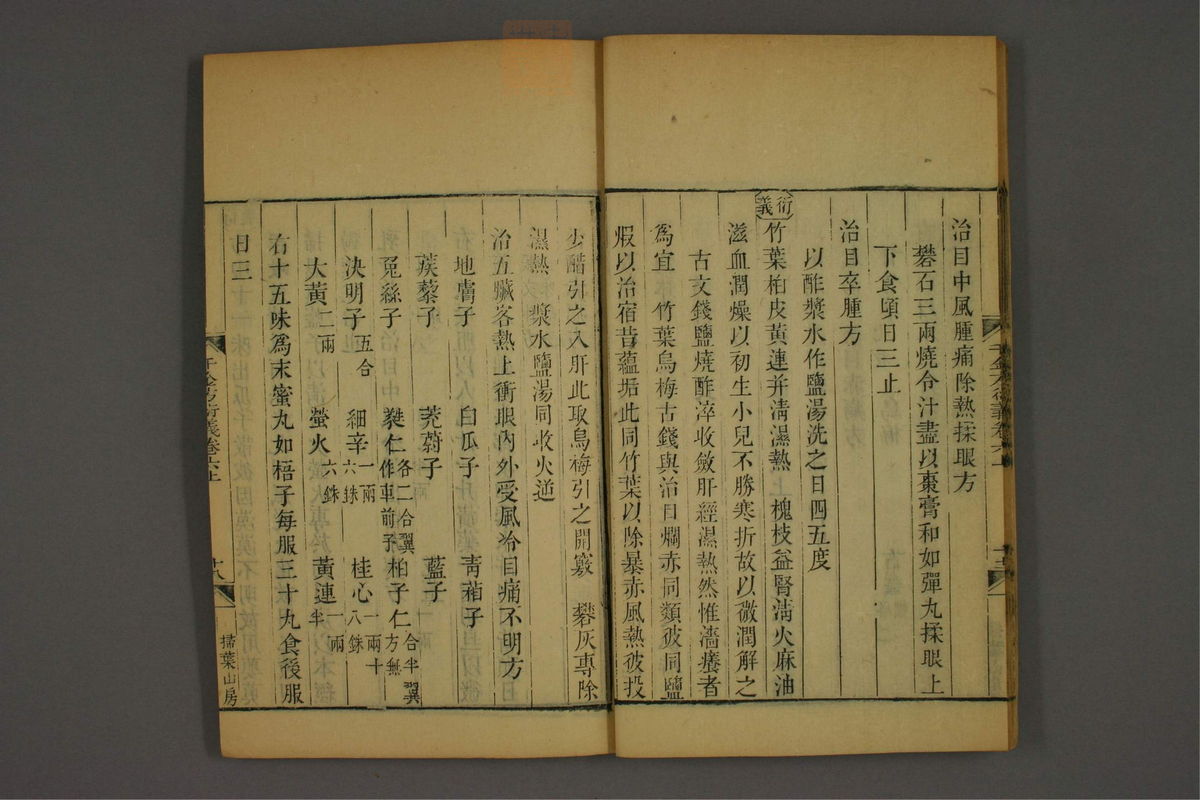 治目中風腫痛除熱揉眼方
礬石三兩燒令汁盡以棗膏和如彈丸揉眼上
下食頃日三止
治目卒腫方
以酢漿水作鹽湯洗之日四五度
衍義
竹葉柏皮黃連并淸濕熱 槐枝益腎淸火麻油
滋血潤燥以初生小兒不勝寒折故以微潤解之
古文錢鹽燒酢淬收斂肝經濕熱然惟濇癢者
爲宜 竹葉烏梅古錢與治目爛赤同類彼同鹽
煆以治宿昔蘊垢此同竹葉以除暴赤風熱彼投
少醋引之入肝此取烏梅引之開竅 礬灰專除
濕熱 漿水鹽湯同收火逆
治五臟客熱上衝眼內外受風冷目痛不明方
地膚子 白瓜子 靑葙子
蒺藜子 茺蔚子 藍子
菟絲子 蕤仁各二合翼作車前子 柏子仁合半翼方無
決明子五合 細辛一兩六銖 桂心一兩十八銖
大黃二兩 螢火六銖 黃連一兩半
右十五味爲末蜜丸如梧子每服三十丸食後服
日三
千金方衍義卷六上
十八
掃葉山房